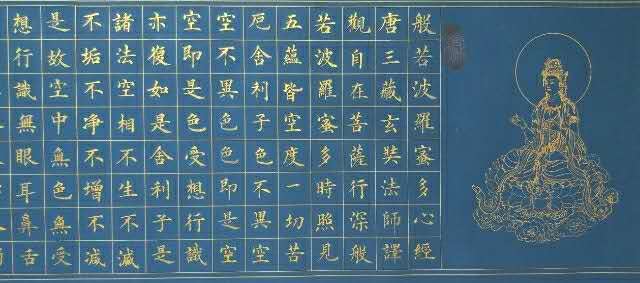 般若波羅蜜多心經
唐三藏玄奘法師譯
觀自在菩薩行深般
若波羅蜜多時照見
五蘊皆空度一切苦
厄舍利子色不異空
空不異色色即是空
空即是色受想行識
亦復如是舍利子是
諸法空相不生不滅
不垢不净不增不減
是故空中無色無受
想行識無眼耳鼻舌